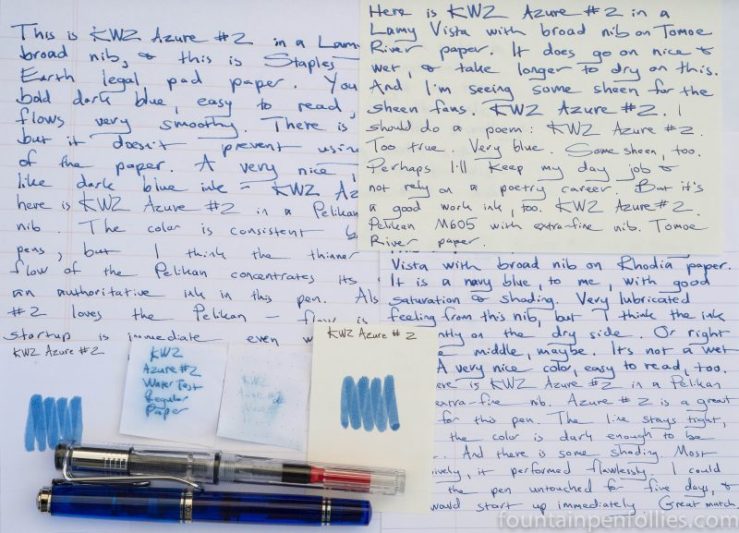 This is KWZ Azure #2 in a Lamy
broad nib, & this is Staples
Earth legal pad paper. You
bold dark blue, easy to read,
flows very smoothly. There is
but it doesn't prevent using
of the paper. A very nice
like dark blue ink = KWZ Az
here is KWZ Azure #2 in a Pelikan
nib. The color is consistent b
pens, but I think the thinner
flow of the Pelikan concentrates its
an authoritative ink in this pen. Als
#2 loves the Pelikan — flow is
startup is immediate even w
Here is KWZ Azure #2 in a
Lamy Vista with broad nib on Tomoe
River paper. It does go on nice &
wet, & take longer to dry on this.
And I'm seeing some sheen for the
sheen fans. KWZ Azure #2. I
should do a poem: KWZ Azure #2.
Too true. Very blue. Some sheen, too.
Perhaps I'll keep my day job &
not rely on a poetry career. But it's
a good work ink, too. KWZ Azure #2.
Pelikan M605 with extra-fine nib. Tomoe
River paper.
Vista with broad nib on Rhodia paper.
It is a navy blue, to me, with good
saturation & shading. Very lubricated
feeling from this nib, but I think the ink
ntly on the dry side. Or right
middle, maybe. It's not a wet
A very nice color, easy to read, too.
ere is KWZ Azure #2 in a Pelikan
extra-fine nib. Azure #2 is a great
for this pen. The line stays tight,
the color is dark enough to be
. And there is some shading. Most
ively, it performed flawlessly. I could
the pen untouched for five days, &
would start up immediately. Great match.
KWZ Azure #2
KWZ
Azure #2
Water Test
Regular
Paper
KWZ
KWZ Azure #2
fountainpenfollies.com